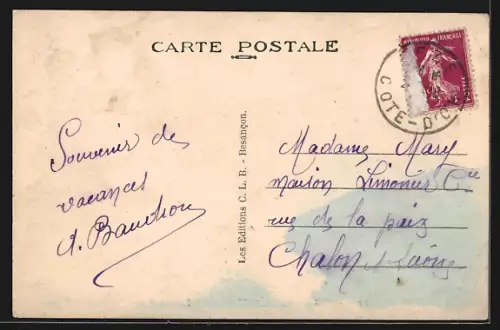 CARTE POSTALE
COTE-D'O
Souvenir de
vacances
A. Bauchon
Les Editions C. L. B. - Besançon.
Madame Mary
maison Limonier Cie
rue de la paix
Chalon s/ Saône